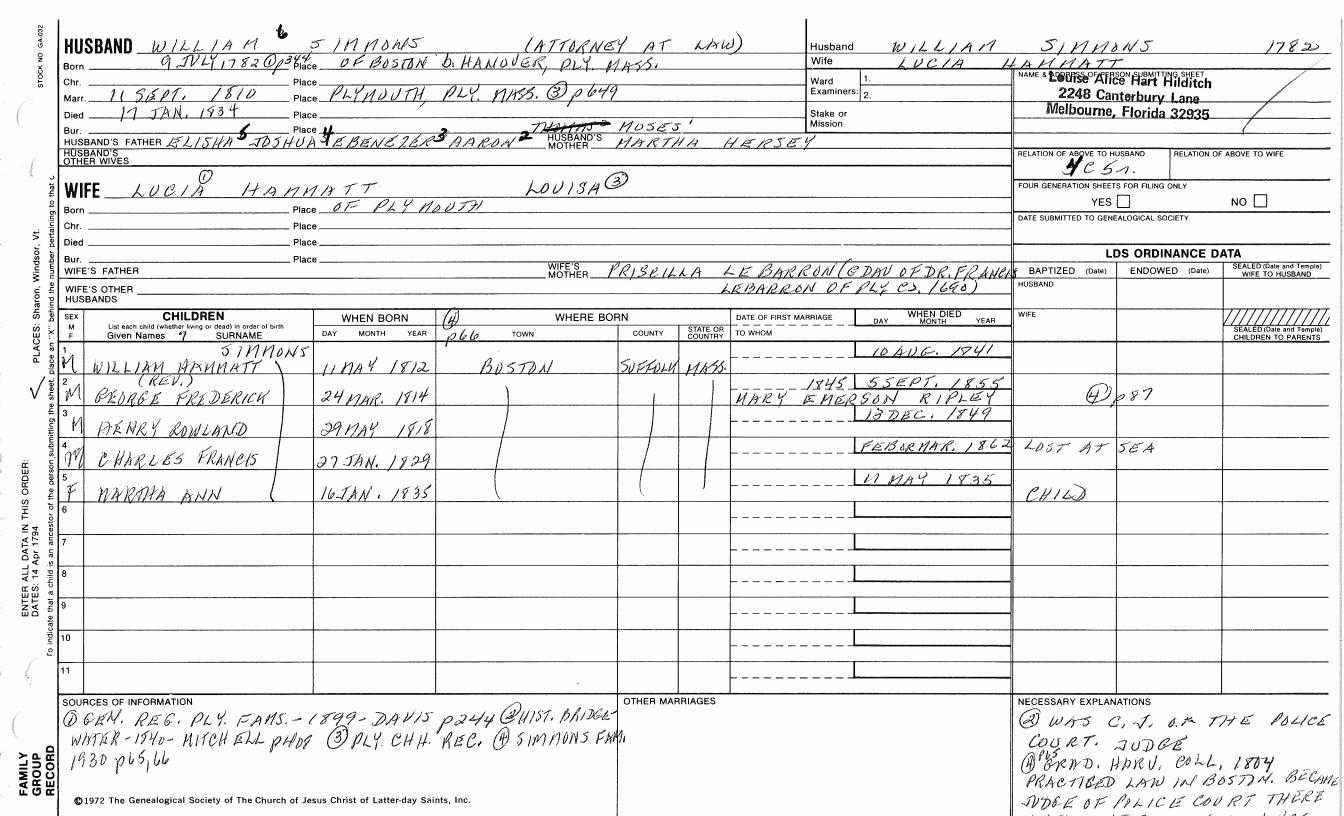 STOCK NO. GA-032
PLACES: Sharon, Windsor, Vt.
ENTER ALL DATA IN THIS ORDER:
DATES: 14 Apr 1794
To indicate that a child is an ancestor of the person submitting the sheet, place an "X" behind the number pertaining to that c
FAMILY GROUP RECORD
HUSBAND WILLIAM 6 SIMMONS (ATTORNEY AT LAW)
Born 9 JULY 1782 ① p344 Place OF BOSTON b. HANOVER, PLY. MASS.
Chr. Place
Marr. 11 SEPT. 1810 Place PLYMOUTH, PLY. MASS. ③ p649
Died 17 JAN. 1834 Place
Bur. Place MOSES 1
HUSBAND'S FATHER ELISHA 5 JOSHUA 4 EBENEZER 3 AARON 2 HUSBAND'S MOTHER MARTHA HERSEY
HUSBAND'S OTHER WIVES
WIFE LUCIA ① HAMMATT LOUISA ③
Born Place OF PLYMOUTH
Chr. Place
Died Place
Bur. Place
WIFE'S FATHER WIFE'S MOTHER PRISCILLA LE BARRON (GDAU OF DR. FRANCIS
WIFE'S OTHER HUSBANDS LEBARRON OF PLY CJ. 1690)
Husband WILLIAM SIMMONS 1782
Wife LUCIA HAMMATT
Ward Examiners: 1. 2.
Stake or Mission
NAME & ADDRESS OF PERSON SUBMITTING SHEET
Louise Alice Hart Hilditch
2248 Canterbury Lane
Melbourne, Florida 32935
RELATION OF ABOVE TO HUSBAND RELATION OF ABOVE TO WIFE
4C 5r.
FOUR GENERATION SHEETS FOR FILING ONLY
YES NO
DATE SUBMITTED TO GENEALOGICAL SOCIETY
LDS ORDINANCE DATA
BAPTIZED (Date) ENDOWED (Date) SEALED (Date and Temple) WIFE TO HUSBAND
HUSBAND
WIFE
SEALED (Date and Temple) CHILDREN TO PARENTS
SEX M F CHILDREN WHEN BORN ④ p66 WHERE BORN DATE OF FIRST MARRIAGE WHEN DIED
List each child (whether living or dead) in order of birth
Given Names 7 SURNAME DAY MONTH YEAR TOWN COUNTY STATE OR COUNTRY TO WHOM DAY MONTH YEAR
1 M WILLIAM HAMMATT SIMMONS 11 MAY 1812 BOSTON SUFFOLK MASS. 10 AUG. 1841
2 M (REV.) GEORGE FREDERICK 24 MAR. 1814 1845 5 SEPT. 1855 ④ p87
MARY EMERSON RIPLEY
3 M HENRY ROWLAND 29 MAY 1818 13 DEC. 1849
4 M CHARLES FRANCIS 27 JAN. 1829 FEB OR MAR. 1862 LOST AT SEA
5 F MARTHA ANN 16 JAN. 1835 17 MAY 1835 CHILD
6
7
8
9
10
11
SOURCES OF INFORMATION
① GEN. REG. PLY. FAMS.-1899-DAVIS p244 ② HIST. BRIDGE-
WATER-1840-MITCHELL p409 ③ PLY. CHH. REC. ④ SIMMONS FAM.
1930 p65,66
OTHER MARRIAGES
NECESSARY EXPLANATIONS
② WAS C. J. OF THE POLICE
COURT. JUDGE
④ p65 GRAD. HARV. COLL, 1804
PRACTICED LAW IN BOSTON. BECAME
JUDGE OF POLICE COURT THERE
©1972 The Genealogical Society of The Church of Jesus Christ of Latter-day Saints, Inc.